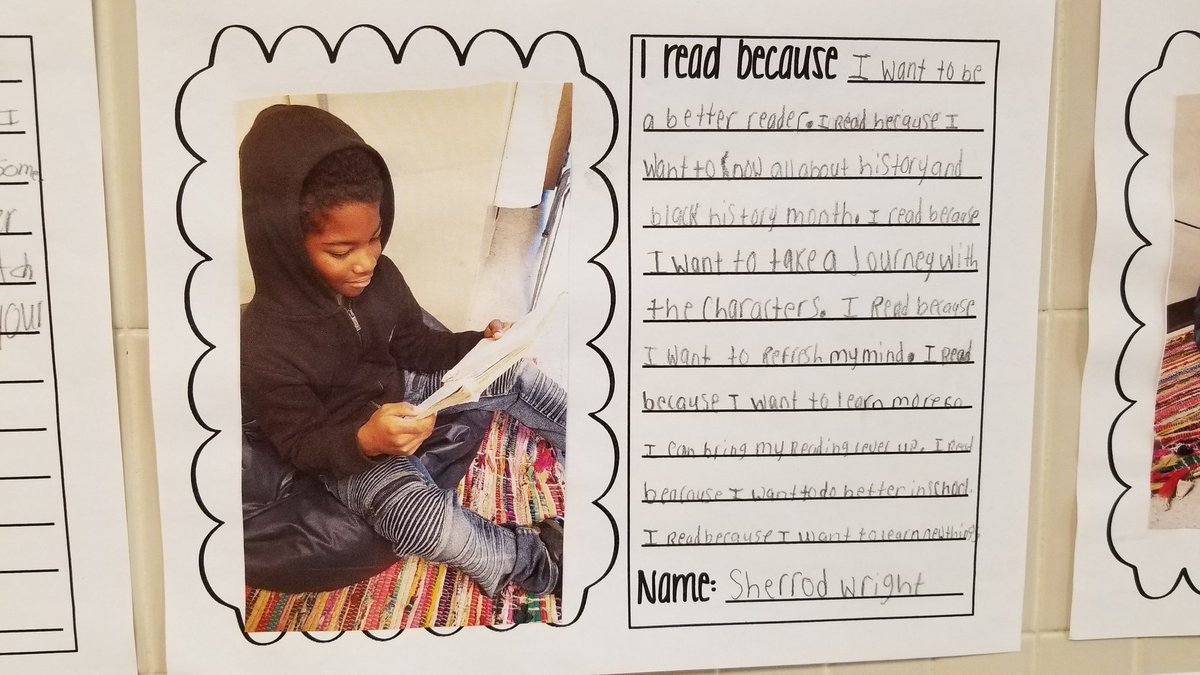 I
Some
er
tch
your
I read because I want to be
a better reader. I Read because I
want to know all about history and
black history month. I read because
I want to take a Journey with
the Characters. I Read because
I want to Refresh my mind. I Read
because I want to learn more so
I can bring my Reading level up. I Read
beacause I want to do better in school.
I Read because I want to learn new things
Name: Sherrod Wright